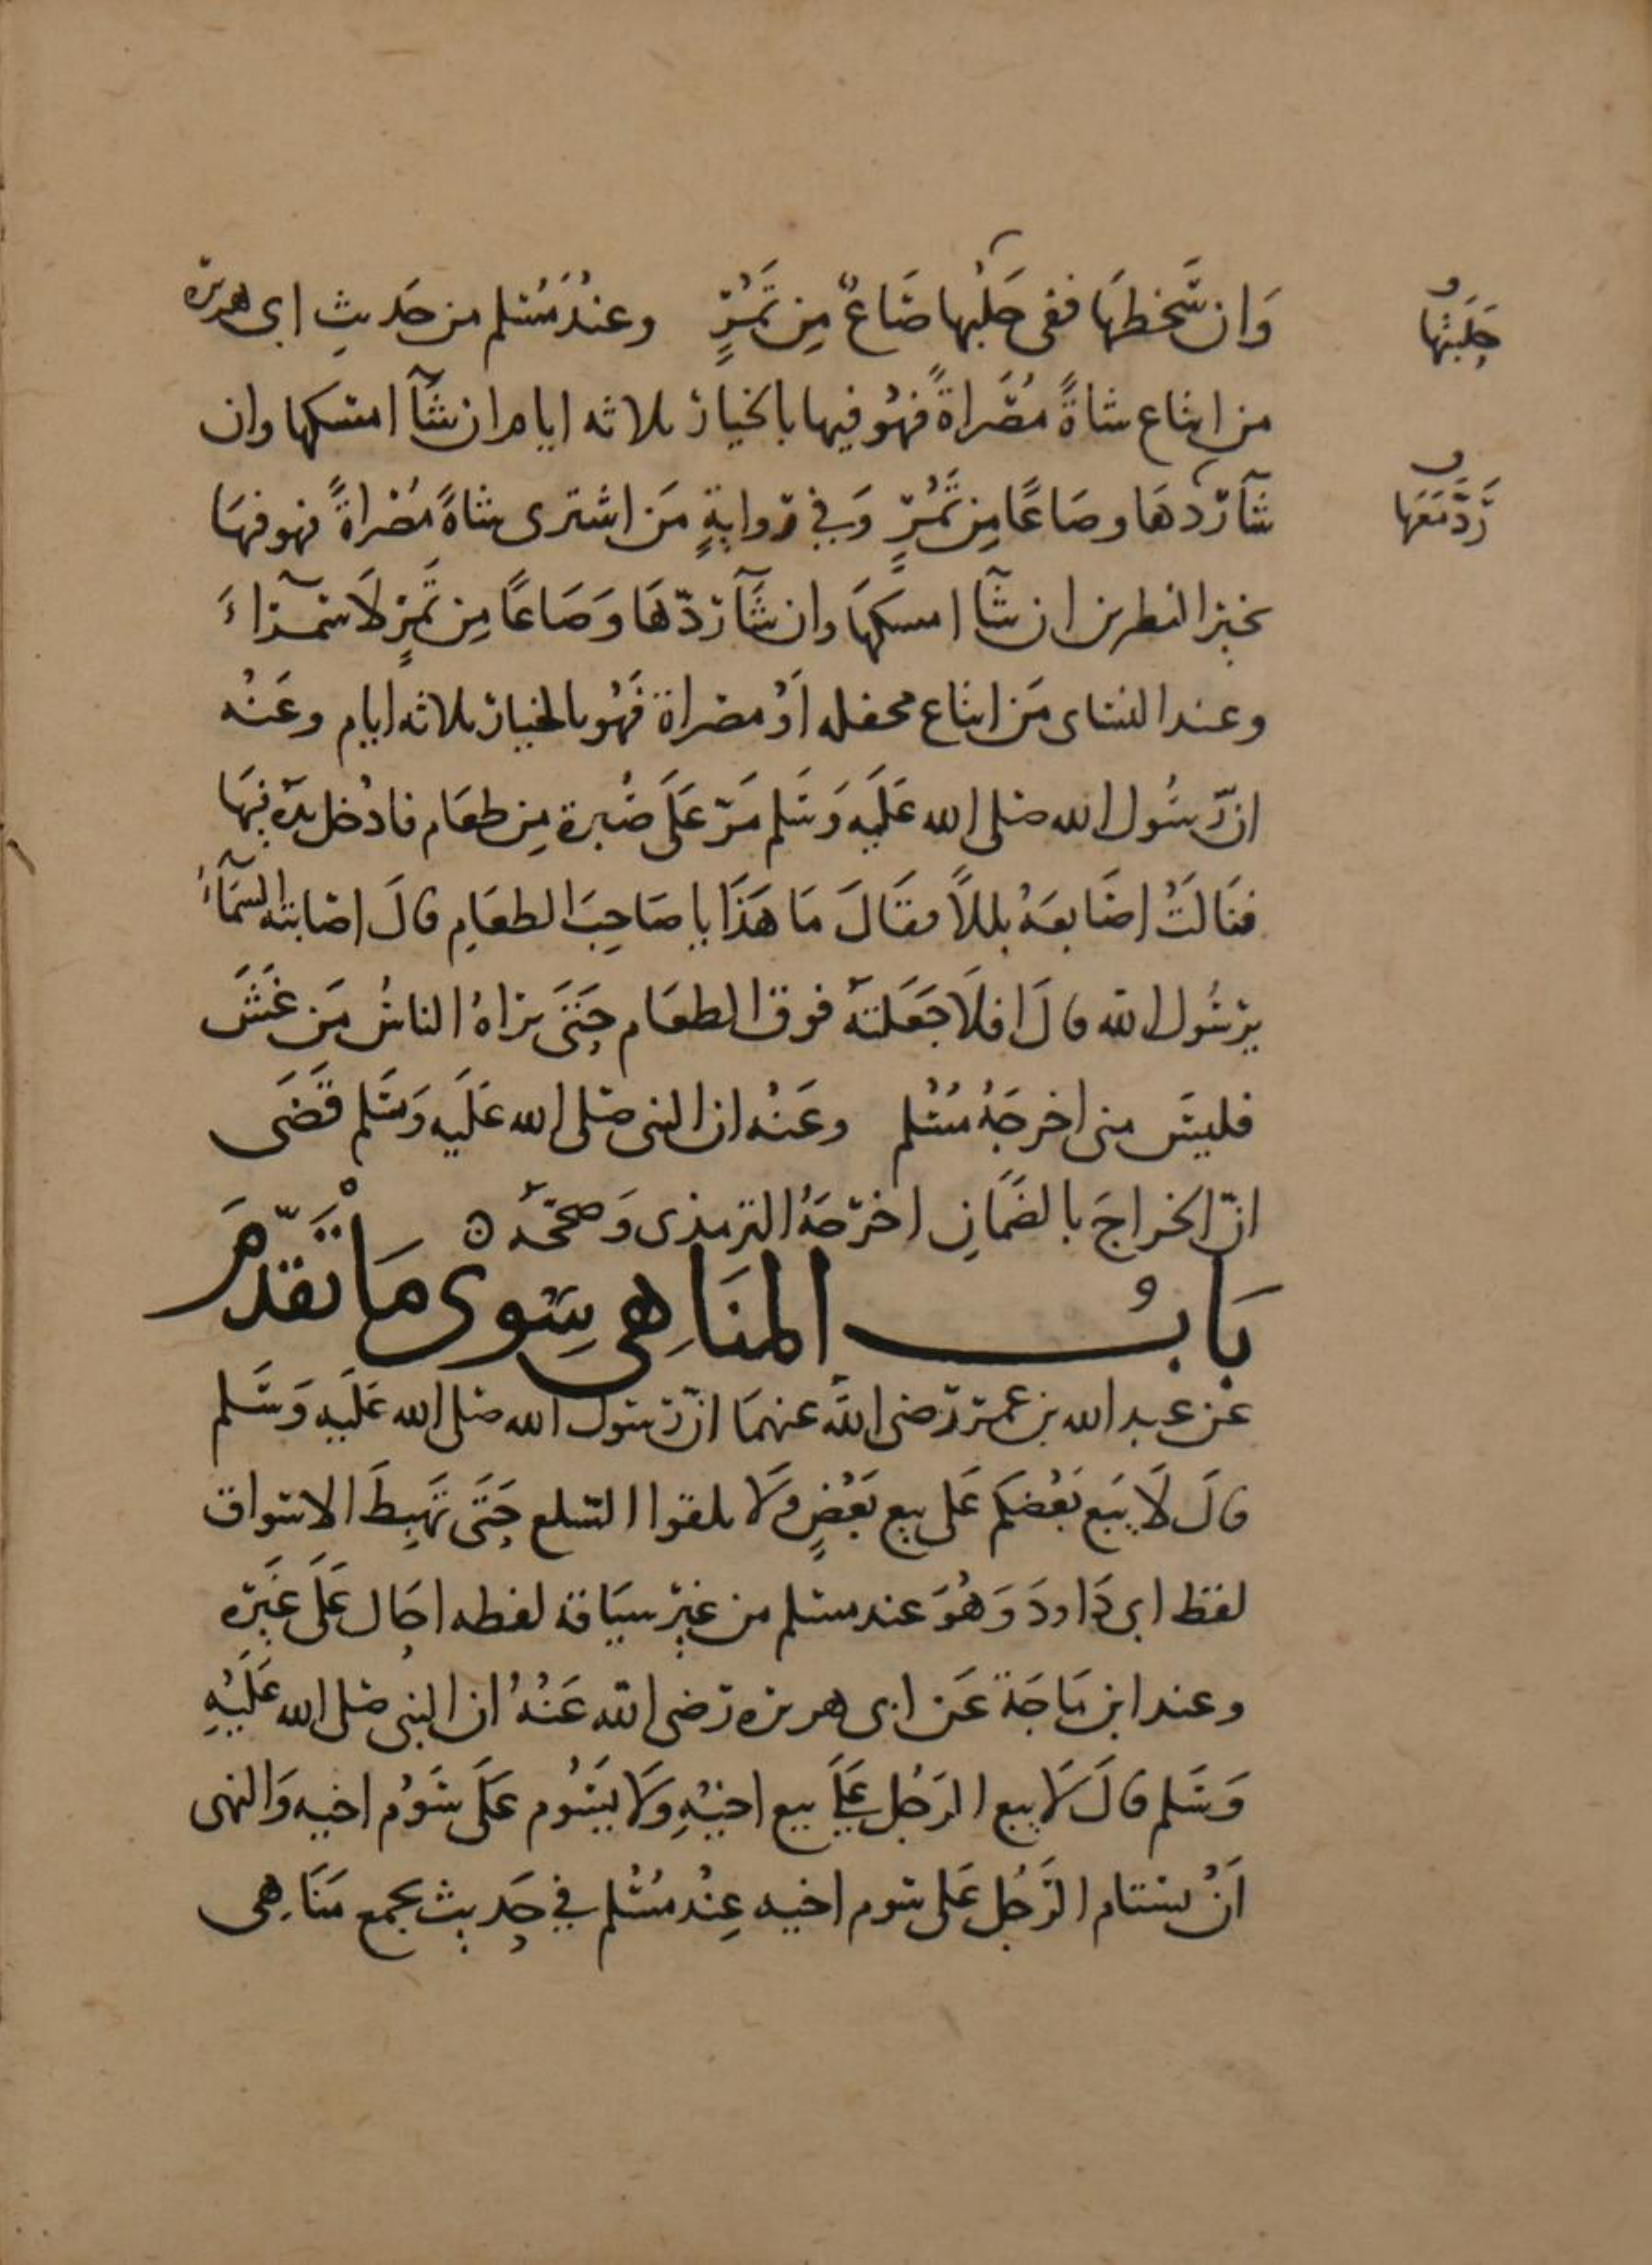 وَان سَّخطهَا ففى حَلْبها صَاعٌ مِن تَمْرٍ وعندُ مُسْلم من حَديثِ ابى هريرة
حَلْبَتها
من ابتاع شاةً مُصَّراةً فهُو فيها بالخيار ثلاثه ايام ان شآ امسكها وان
شآ رَدّهَا وصَاعًا مِن تَمْرٍ وَفي رِوايةٍ مَن اشترى شاةً مُصْراةً فهو فيهَا
رَدَّ مَعَهَا
بخير النظرين ان شآ امسكهَا وان شآ رَدّهَا وَصَاعًا مِن تَمرٍ لَا سَمرآءَ
وعند النسَاى مَن ابتاع محفله اَوْ مصراة فَهُو بالخيار ثلاثه ايام وعَنْه
انّ رسُول الله صلى الله عَلَيه وَسَلم مَرّ عَلَى صُبرة مِن طعَام فادْخل يدَه فيهَا
فنَالَتْ اصَابعَهُ بللاً فقَالَ مَا هَذَا يا صَاحِبَ الطعَامِ قالَ اصَابته السَّمآءُ
يرسُول الله قالَ افلَا جَعَلتهُ فوق الطعَام حَتَّى يرَاهُ الناسُ مَن غشَّ
فليسَ منى اخرجَهُ مُسْلم وعَنْه ان النبى صلى الله عَلَيه وَسَلم قَضَى
انّ الخراجَ بالضَمَانِ اخرَجَهُ الترمذى وَصحّحَهُ ه
بَابُ المنَاهِى سِوى مَا تقدّمَ
عَن عبد الله بن عمَر رَضى اللهُ عنهمَا انّ رسول الله صلى الله عَلَيه وَسَلم
قالَ لَا يَبع بَعْضكم عَلى بيع بَعْضٍ ولَا تلقوا السّلع حَتَّى تهبِطَ الاسواق
لفظ ابى دَاودَ وَهُوَ عند مسلم من غير سيَاقة لفظه احَال عَلَى غَيره
وعند ابن مَاجَة عَن ابى هريره رَضى الله عَنْهُ ان النبى صلى الله عَلَيْهِ
وَسَلم قالَ لَا يبيع الرَجُل عَلَى بيع اخيْهِ ولَا يسُوم عَلَى سَوْم اخيه وَالنهى
اَنْ يستام الرَجُل عَلى سوم اخيه عِنْد مُسْلم في حَديث يجمع مَنَاهِى